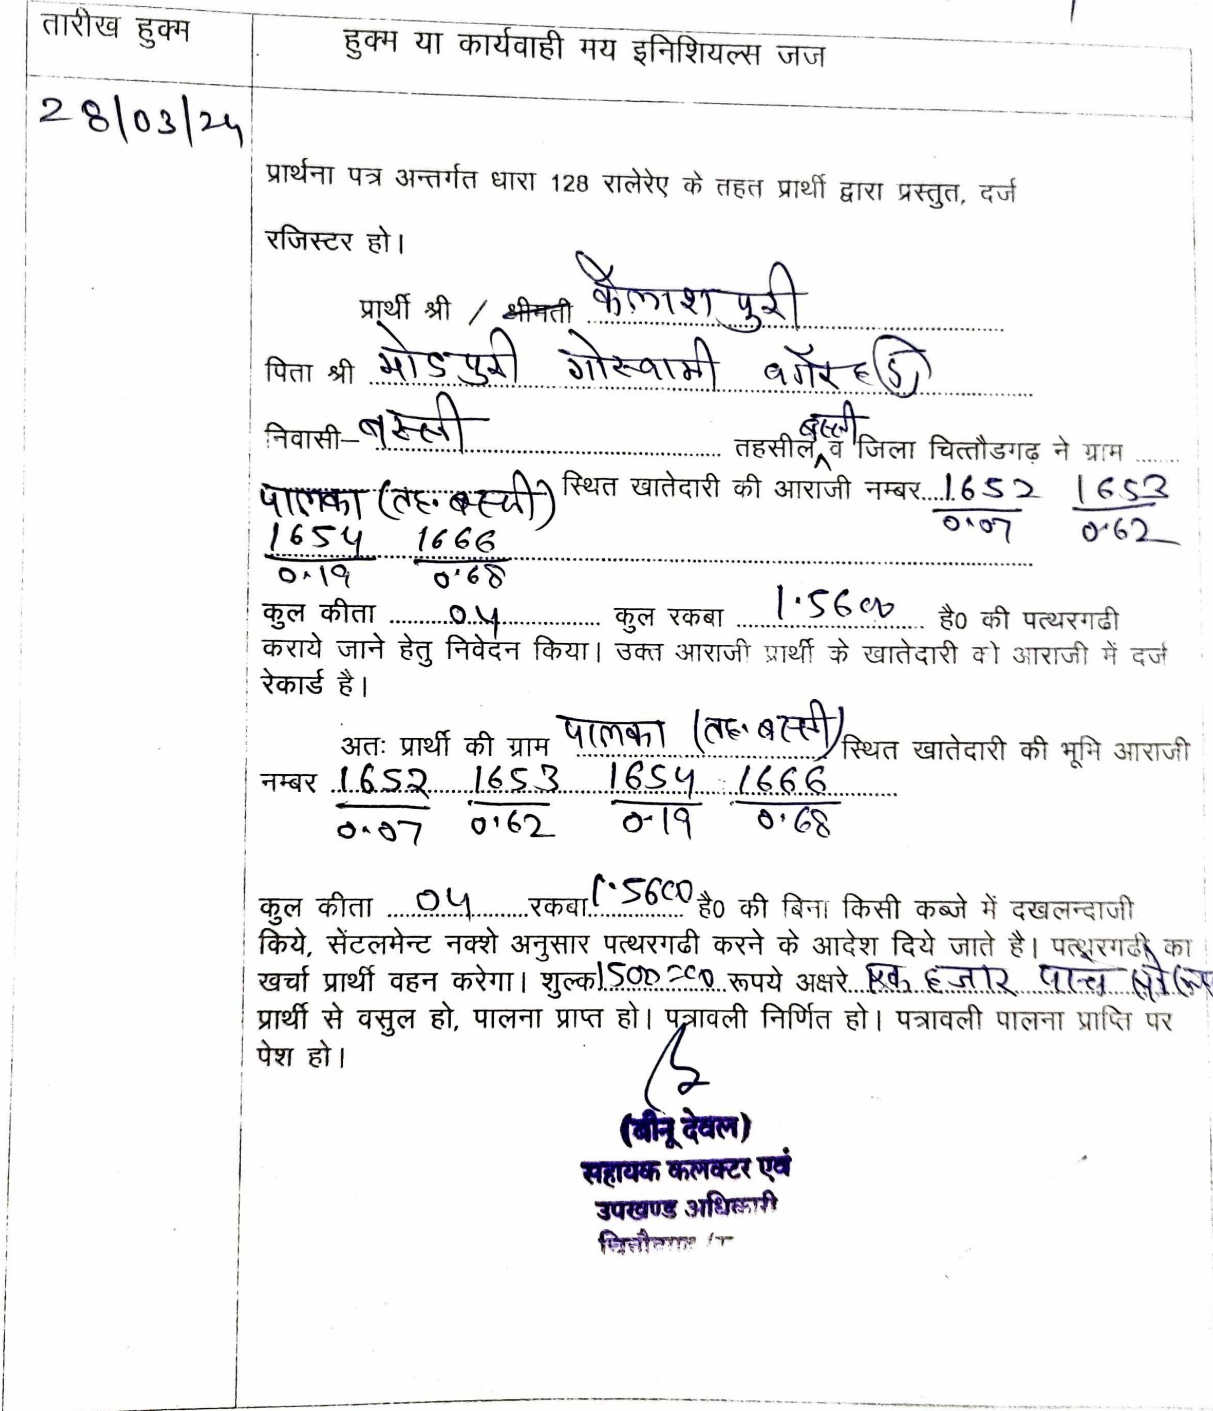 तारीख हुक्म
हुक्म या कार्यवाही मय इनिशियल्स जज
28/03/24
प्रार्थना पत्र अन्तर्गत धारा 128 रालेरेए के तहत प्रार्थी द्वारा प्रस्तुत, दर्ज
रजिस्टर हो।
प्रार्थी श्री / श्रीमती कैलाश पुरी
पिता श्री मोडपुरी गोस्वामी वगैरह
निवासी– बस्सी तहसील बस्सी व जिला चित्तौडगढ़ ने ग्राम ........
पालका (तह. बस्सी) स्थित खातेदारी की आराजी नम्बर.... 1652 1653
0.07 0.62
1654 1666
0.19 0.68
कुल कीता ..........04.......... कुल रकबा 1.5600 है0 की पत्थरगढी
कराये जाने हेतु निवेदन किया। उक्त आराजी प्रार्थी के खातेदारी की आराजी में दर्ज
रेकार्ड है।
अतः प्रार्थी की ग्राम पालका (तह. बस्सी) स्थित खातेदारी की भूमि आराजी
नम्बर 1652 1653 1654 1666
0.07 0.62 0.19 0.68
कुल कीता ....04....रकबा 1.5600 है0 की बिना किसी कब्जे में दखलन्दाजी
किये, सेंटलमेन्ट नक्शे अनुसार पत्थरगढी करने के आदेश दिये जाते है। पत्थरगढी का
खर्चा प्रार्थी वहन करेगा। शुल्क 1500=00 रूपये अक्षरे.. एक हजार पान्च सौ
प्रार्थी से वसुल हो, पालना प्राप्त हो। पत्रावली निर्णित हो। पत्रावली पालना प्राप्ति पर
पेश हो।
(बीनू देवल)
सहायक कलक्टर एवं
उपखण्ड अधिकारी